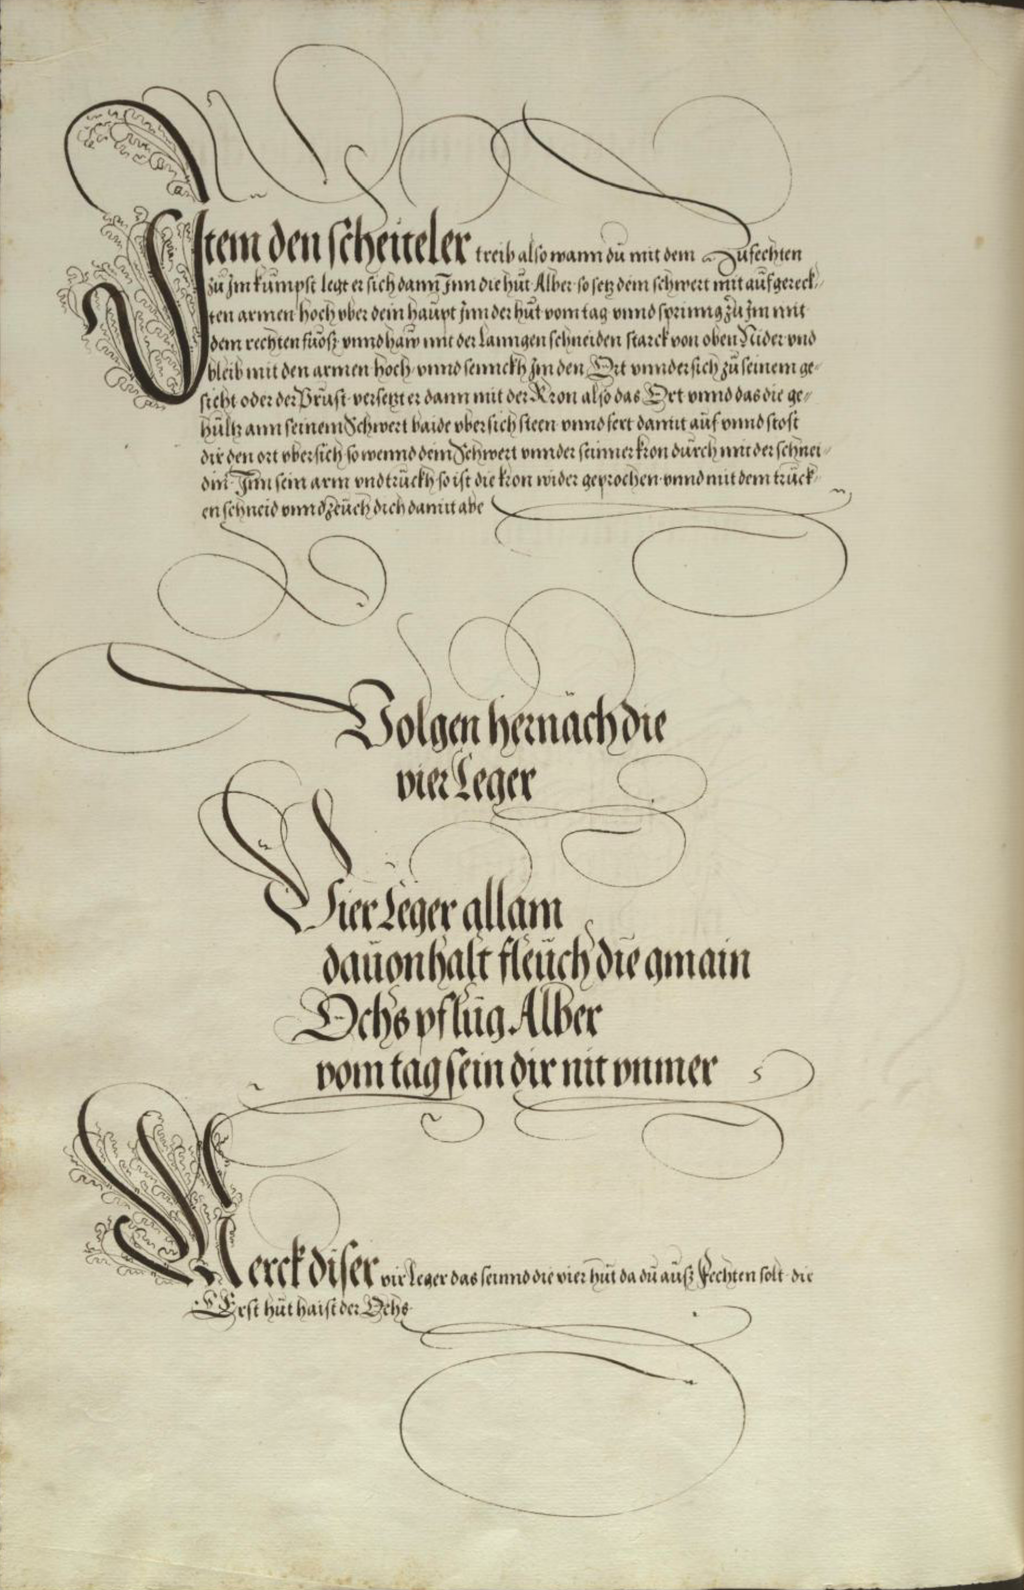 Item den scheiteler treib also wann dü mit dem Züfechten
zü Jm kümpst legt er sich dann Jnn die hüt Alber so setz dein schwert mit aufgereck-
ten armen hoch vber dein haüpt Jnn der hüt vom tag vnnd sprinng zü Jm mit
dem rechten füosz vnnd haw mit der lanngen schneiden starck von oben Nider vnd
bleib mit den armen hoch vnnd sennckh Jm den Ort vnnder sich zü seinem ge-
sicht oder der Brust versetzt er dann mit der Kron also das Ort vnnd das die ge-
hültz ann seinem Schwert baide vbersich steen vnnd fert damit auf vnnd stost
dir den ort vbersich so wennd dein Schwert vnnder seinner kron dürch mit der schnei-
din Jnn sein arm vnd trückh so ist die kron wider geprochen vnnd mit dem trück-
en schneid vnnd zeüch dich damit abe
Volgen hernäch die
vier Leger
Vier Leger allain
dauon halt fleüch die gmain
Ochs pflüg Alber
vom tag sein dir nit vnmer
Merck diser vir Leger das seinnd die vier hüt da dü ausz Fechten solt die
Erst hüt haist der Ochs